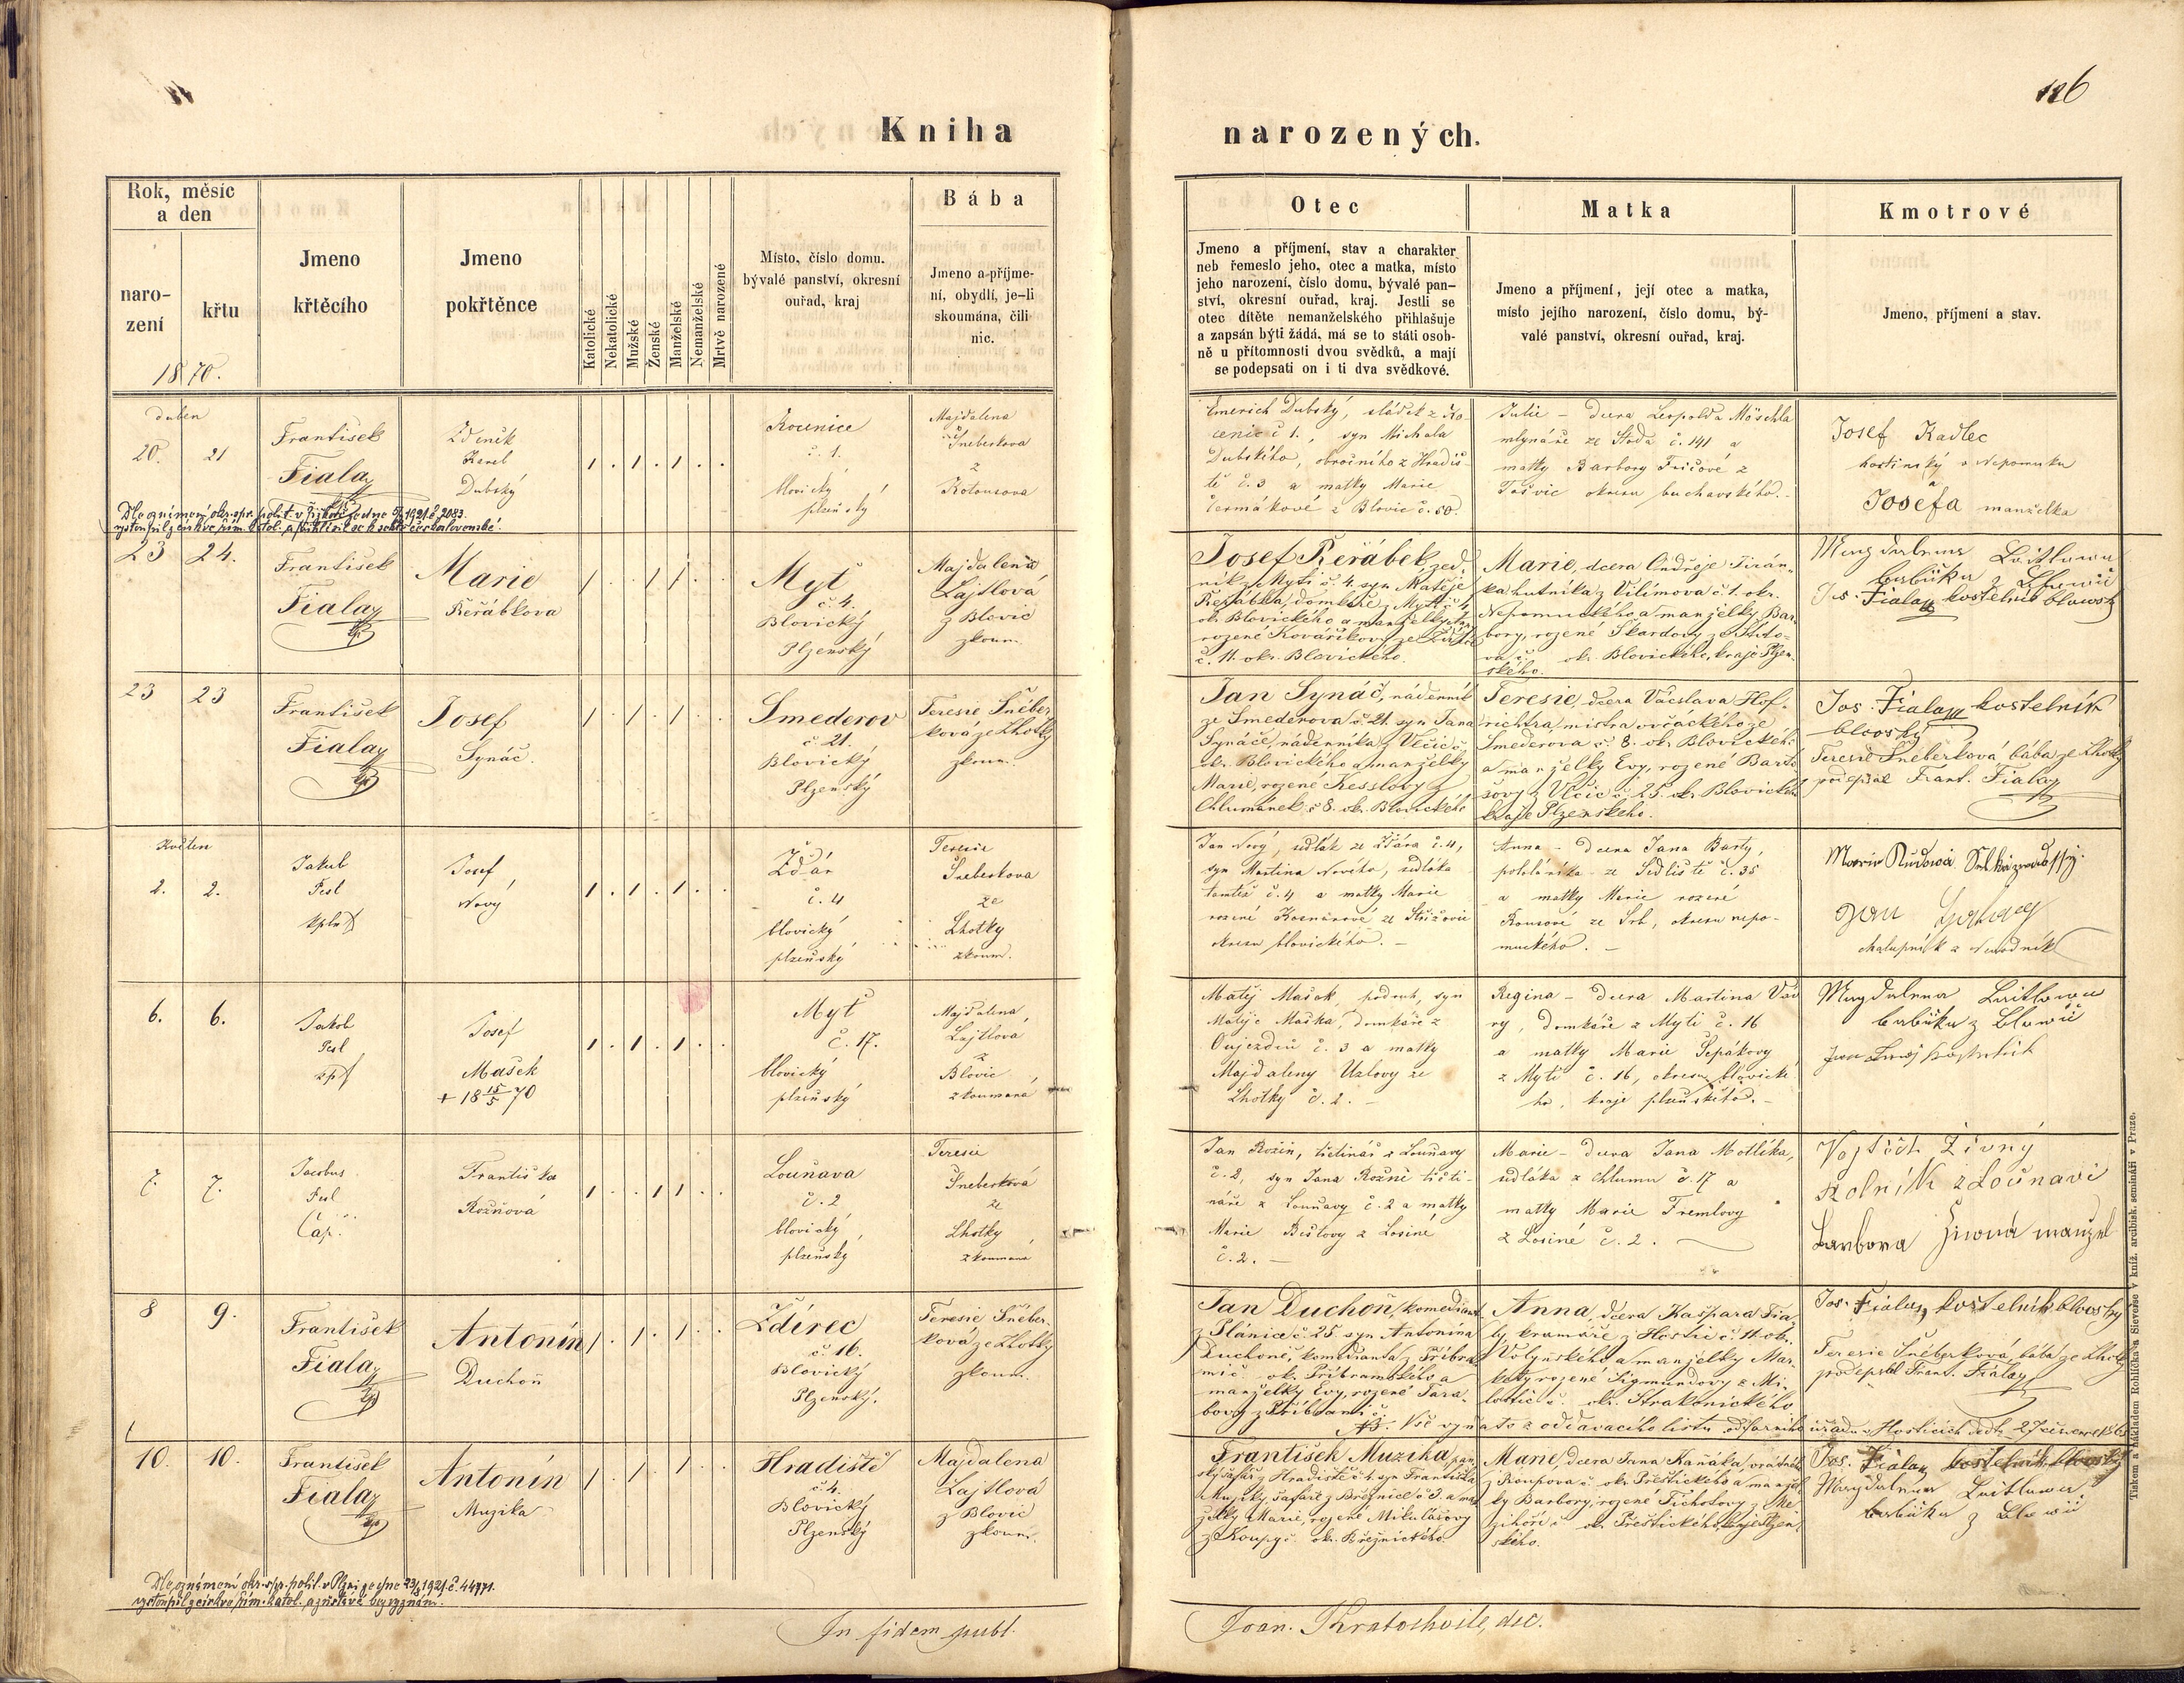 126
Kniha narozených.
Rok, měsíc
a den
naro-
zení
křtu
1870.
Jmeno
křtěcího
Jmeno
pokřtěnce
Katolické
Nekatolické
Mužské
Ženské
Manželské
Nemanželské
Mrtvě narozené
Místo, číslo domu.
bývalé panství, okresní
ouřad, kraj
Bába
Jmeno a příjme-
ní, obydlí, je-li
skoumána, čili
nic.
Otec
Jmeno a příjmení, stav a charakter
neb řemeslo jeho, otec a matka, místo
jeho narození, číslo domu, bývalé pan-
ství, okresní ouřad, kraj. Jestli se
otec dítěte nemanželského přihlašuje
a zapsán býti žádá, má se to státi osob-
ně u přítomnosti dvou svědků, a mají
se podepsati on i ti dva svědkové.
Matka
Jmeno a příjmení, její otec a matka,
místo jejího narození, číslo domu, bý-
valé panství, okresní ouřad, kraj.
Kmotrové
Jmeno, příjmení a stav.
duben
20. 21
František
Fiala
Zdeněk
Karel
Dubský
Kocenice
č. 1.
blovický
plzeňský
Majdalena
Šneberkova
z
Kotousova
Emerich Dubský, sládek z Ko-
cenic č 1., syn Michala
Dubského, obročního z Hradiš-
tě č. 3 a matky Marie
Čermákové z Blovic č. 50.
Julie – dcera Leopolda Möschla
mlynáře ze Stoda č. 141 a
matky Barbory Fričové z
Tošvic okresu buchavského.
Josef Kadlec
hostinský v Nepomuku
a
Josefa manželka
Dle oznámení okr. spr. polit. v 1921 č. 2083.
vystoupil z církve řím. katol. a přihlásil se k církvi československé.
23 24.
František
Fiala
Marie
Řeřábkova
Myť
č. 4.
Blovický
Plzenský
Majdalena
Lajtlová
z Blovic
zkoum.
Josef Řeřábek, zed-
ník z Myti č. 4. syn Matěje
Řeřábka, domkáře z Myti č. 4
okr. Blovického a manželky
rozené Kovaříkovy ze
č. 11. okr. Blovického.
Marie, dcera Ondřeje Jirán-
ka hutníka z Vilímova č 1. okr.
Nepomuckého a manželky Bar-
bory, rozené Škardovy ze Štito-
va č. okr. Blovického, kraje Plzen-
ského.
Magdalena Laitlowa
babička z Blowic
Jos. Fiala kostelník blowsk
23 23
František
Fiala
Josef
Synáč.
Smederov
č. 21.
Blovický
Plzenský
Teresie Šneber-
ková ze Lhotky
zkoum.
Jan Synáč, nádenník
ze Smederova č. 21. syn Jana
Synáče, nádenníka z Vlčic č.
okr. Blovického a manželky
Marie, rozené Kesslovy z
Chlumánek č 8. okr. Blovického
Teresie, dcera Václava Hof-
richtra, mistra ovčackého ze
Smederova č. 8. okr. Blovického
a manželky Evy, rozené Barto-
šovy z Vlčic č. 25. okr. Blovického
kraje Plzenského.
Jos. Fiala kostelník
blovský
Teresie Šneberková bába ze Lhotky
podepsal Frant. Fiala
Květen
2. 2.
Jakub
Pesl
kpln
Josef
Nový
Ždár
č. 4
blovický
plzeňský
Teresie
Šneberkova
ze
Lhotky
zkoum.
Jan Nový, sedlák ze Ždára č. 4,
syn Martina Nového, sedláka
tamtéž č. 4 a matky Marie
rozené ze Střížovic
okresu blovického. –
Anna – dcera Jana Barty,
pololáníka ze Sedliště č. 35
a matky Marie rozené
Kousové ze Srb, okresu nepo-
muckého. –
chalupník z
6. 6.
Jakob
Pesl
Josef
Mašek
+ 18 15/5 70
Myť
č. 17.
blovický
plzeňský
Majdalena,
Lajtlova
z
Blovic
zkoumaná
Matěj Mašek, podruh, syn
Matěje Maška, domkáře z
Oujezdu č. 3 a matky
Majdaleny Uzlovy ze
Lhotky č. 2. –
Regina – dcera Martina
domkáře z Myti č. 16
a matky Marie Šepákovy
z Myti č. 16, okresu blovické-
ho, kraje plzeňského. –
Magdalena Laitlowa
babička z Blowic
7. 7.
Jacobus
Pesl
Cap.
Františka
Rožňová
Louňava
č. 2
blovický
plzeňský
Teresie
Šneberkova
ze
Lhotky
zkoumaná
Jan Rožin, tišlinář z Louňavy
č. 2, syn Jana Rožně
z Louňavy č. 2 a matky
Marie z Losiné
č. 2. –
Marie – dcera Jana Motlíka,
sedláka z Chlumu č. 17 a
matky Marie Tremlovy
z Losiné č. 2.
Vojtěch Živný
rolník z Lounavi
Barbora Živná manžel
8 9.
František
Fiala
Antonín
Duchoň
Ždírec
č. 16.
Blovický
Plzenský.
Teresie Šneber-
ková ze Lhotky
zkoum.
Jan Duchoň, komediant
z Plánice č. 25. syn Antonína
Duchoně, komedianta z Příbra-
mě č. okr. Příbramského a
manželky Evy, rozené Tara-
bovy z Příbrami č.
Anna, dcera Kašpara Fia-
ly, kramáře z Hostic č. 11. okr.
Volyňského a manželky Mar-
kety, rozené Sigmundovy z Mi-
lostic č. okr. Strakonického
Jos. Fiala, kostelník blovský
Teresie Šneberková, bába ze Lhotky
podepsal Frant. Fiala
NB. Vše vyňato z oddavacího listu od farního úřadu v Hosticích
10. 10.
František
Fiala
Antonín
Muzika
Hradiště
č. 4.
Blovický
Plzenský
Majdalena
Lajtlová
z Blovic
zkoum.
František Muzika, pan-
ský šafář z Hradiště č 4. syn Františka
Muziky, šafáře z Březnice č 3. a man-
želky Marie, rozené Mikulášovy
z Koupy č. okr. Březnického.
Marie, dcera Jana Kaňáka,
z Roupova č. okr. Přeštického a manžel-
ky Barbory, rozené Tícholovy z Me-
zihoří č. okr. Přeštického, kraje Plzen-
ského.
Jos. Fiala kostelník blovský
Magdalena Laitlowa
babička z Blowic
Dle oznámení okr. spr. polit. v Plzni ze dne 23/8 1921 č. 44771.
vystoupil z církve řím. katol. a zůstává bez vyznání.
In fidem publ.
Joan. Kratochvile, dec.
Tiskem a nákladem Rohlíčka a Sieverse v kníž. arcibisk. semináři v Praze.